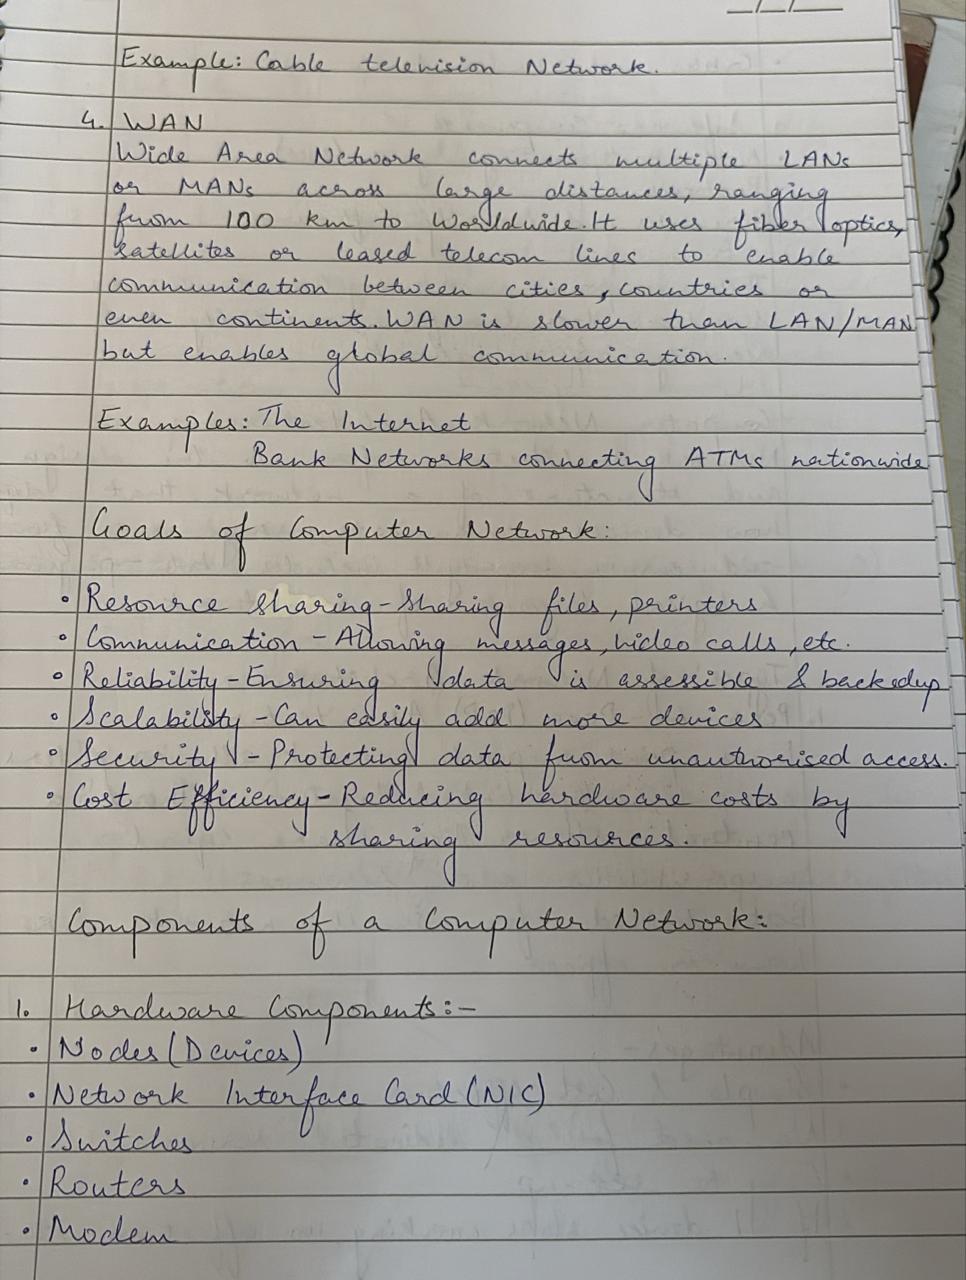 Example: Cable television Network.
4. WAN
Wide Area Network connects multiple LANs
or MANs across large distances, ranging
from 100 km to Worldwide. It uses fiber optics,
satellites or leased telecom lines to enable
communication between cities, countries or
even continents. WAN is slower than LAN/MAN
but enables global communication.
Examples: The Internet
Bank Networks connecting ATMs nationwide
Goals of Computer Network:
• Resource sharing - Sharing files, printers
• Communication - Allowing messages, video calls, etc.
• Reliability - Ensuring data is assessible & backedup
• Scalability - Can easily add more devices
• Security - Protecting data from unauthorised access.
• Cost Efficiency - Reducing hardware costs by
sharing resources.
Components of a Computer Network:
1. Hardware Components:-
• Nodes (Devices)
• Network Interface Card (NIC)
• Switches
• Routers
• Modem